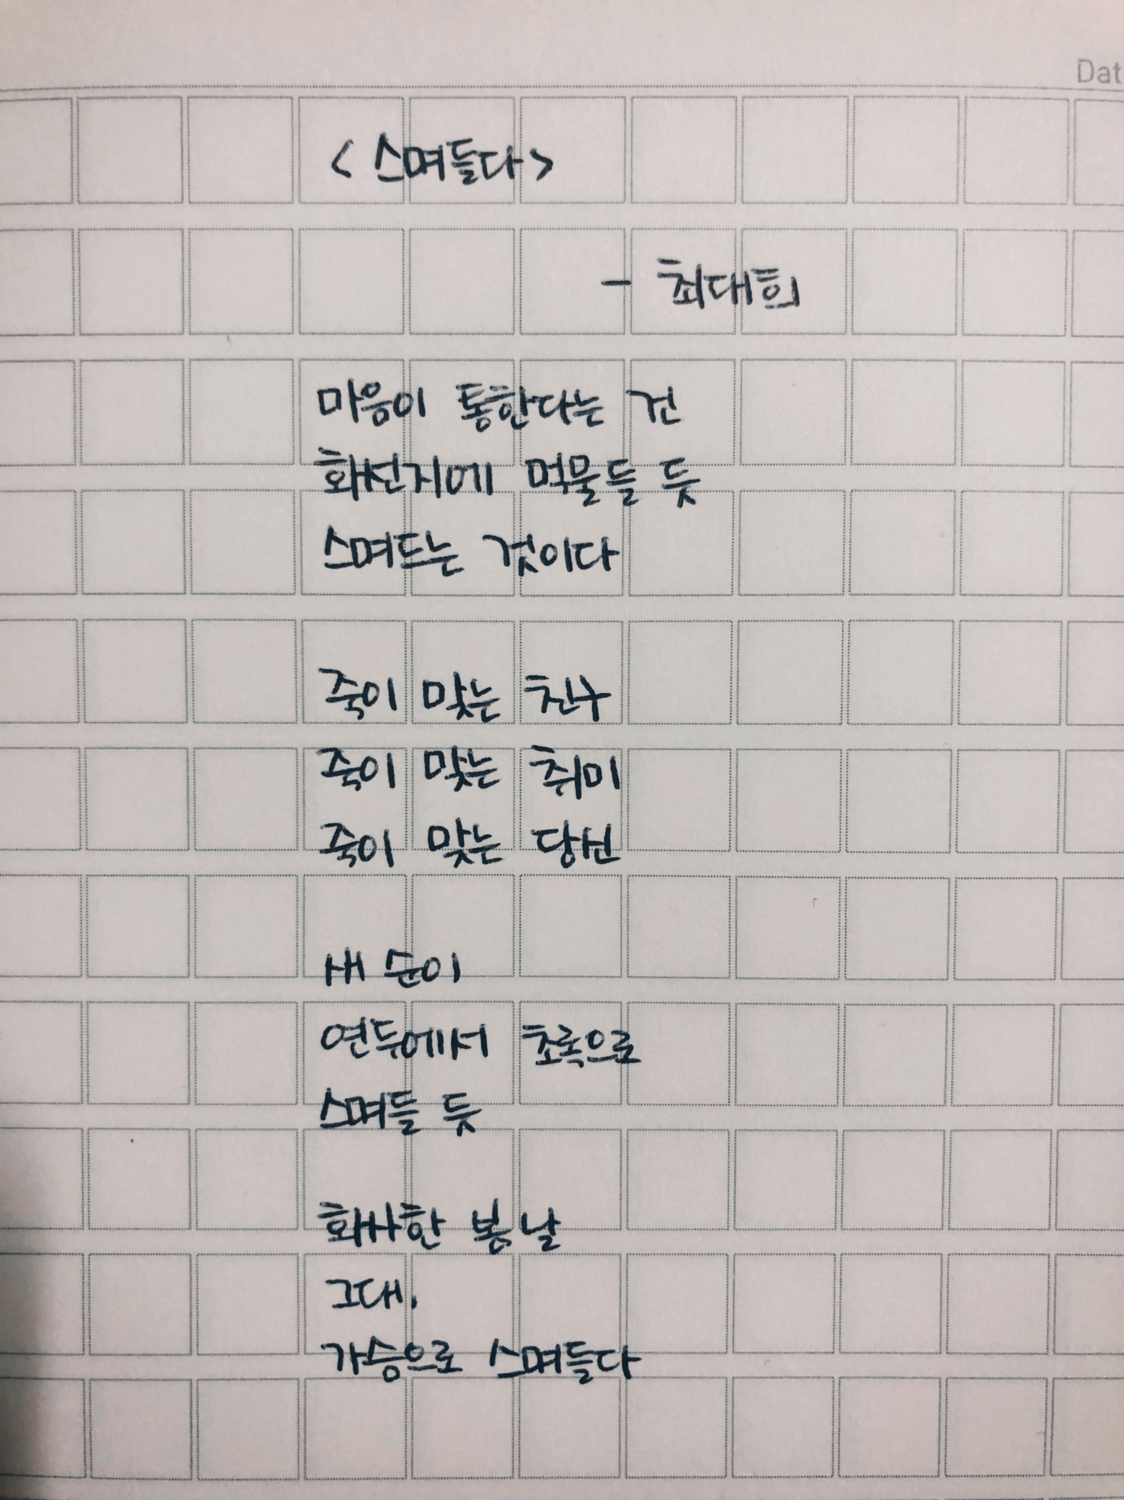 Dat
< 스며들다 >
- 최대희
마음이 통한다는 건
화선지에 먹물들 듯
스며드는 것이다
죽이 맞는 친구
죽이 맞는 취미
죽이 맞는 당신
새 순이
연두에서 초록으로
스며들 듯
화사한 봄날
그대,
가슴으로 스며들다